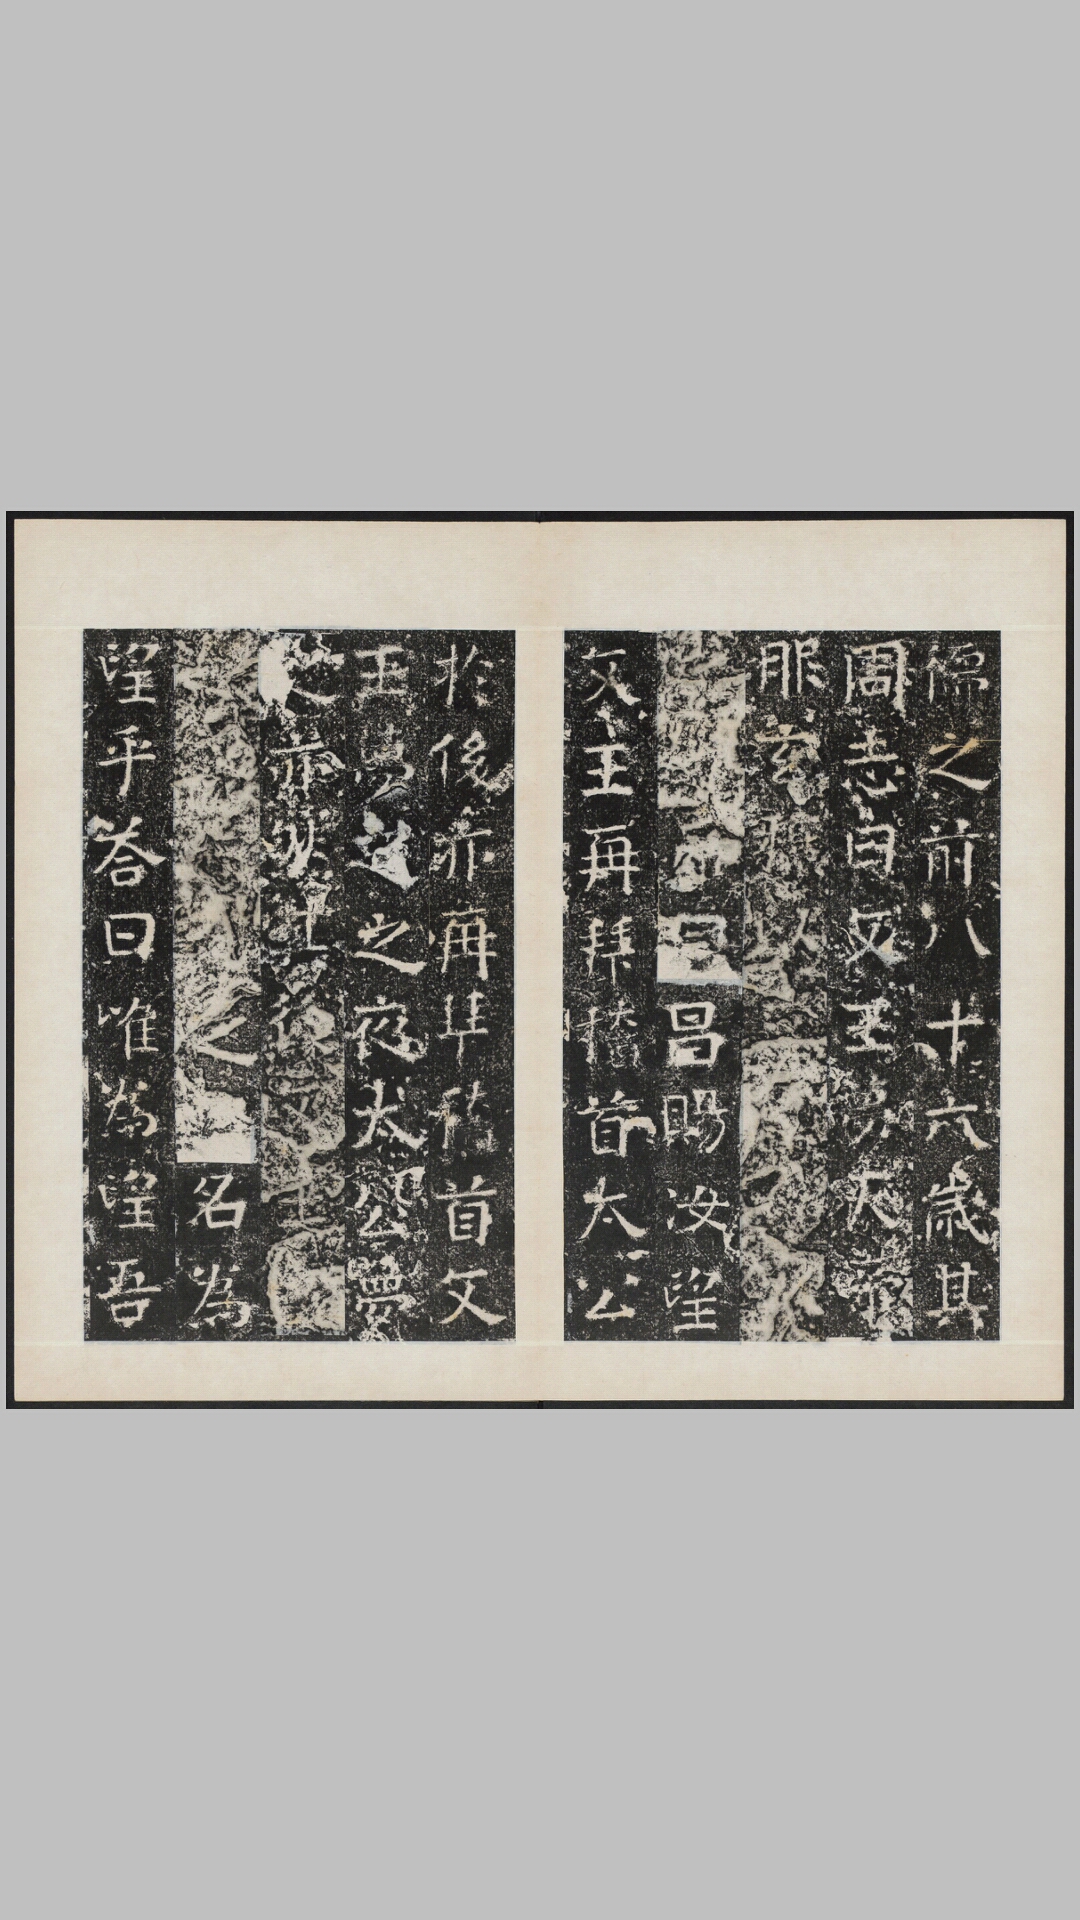 儒之前八十六歲其
周志曰文王夢天帝
服玄禳以
帝曰昌賜汝望
文王再拜稽首太公
於後亦再拜稽首文
王夢之之夜太公夢
之亦然其後文王見
之名為
望乎答曰唯為望吾